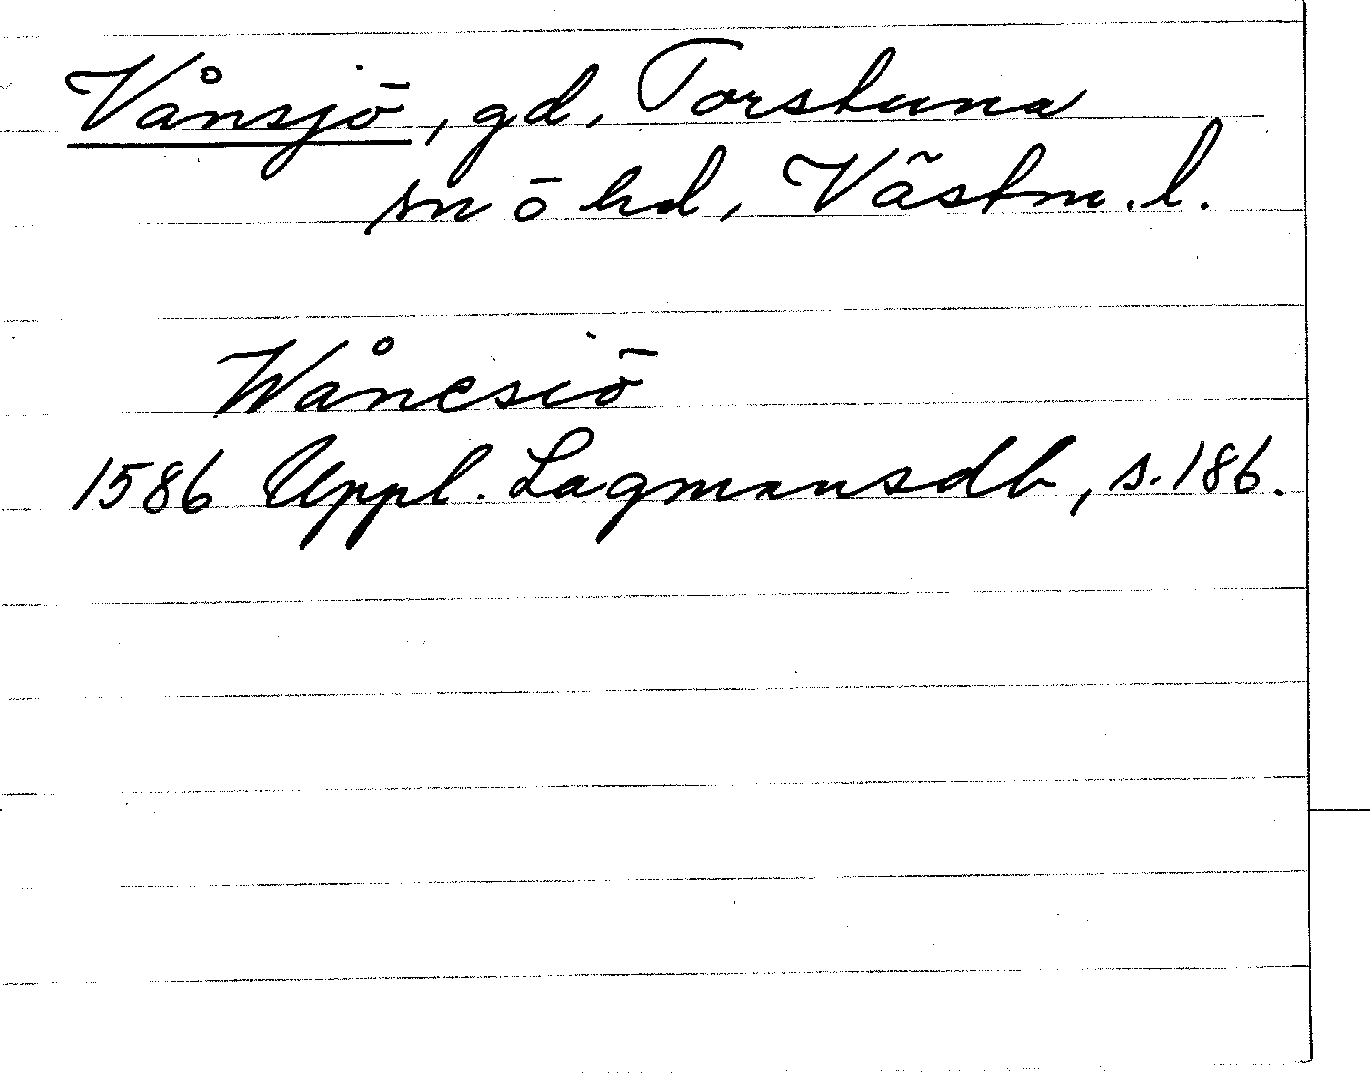 Vånsjö, gd, Torstuna
sn ö hd, Västm. l.
Wånesiö
1586 Uppl. Lagmansdb, s. 186.